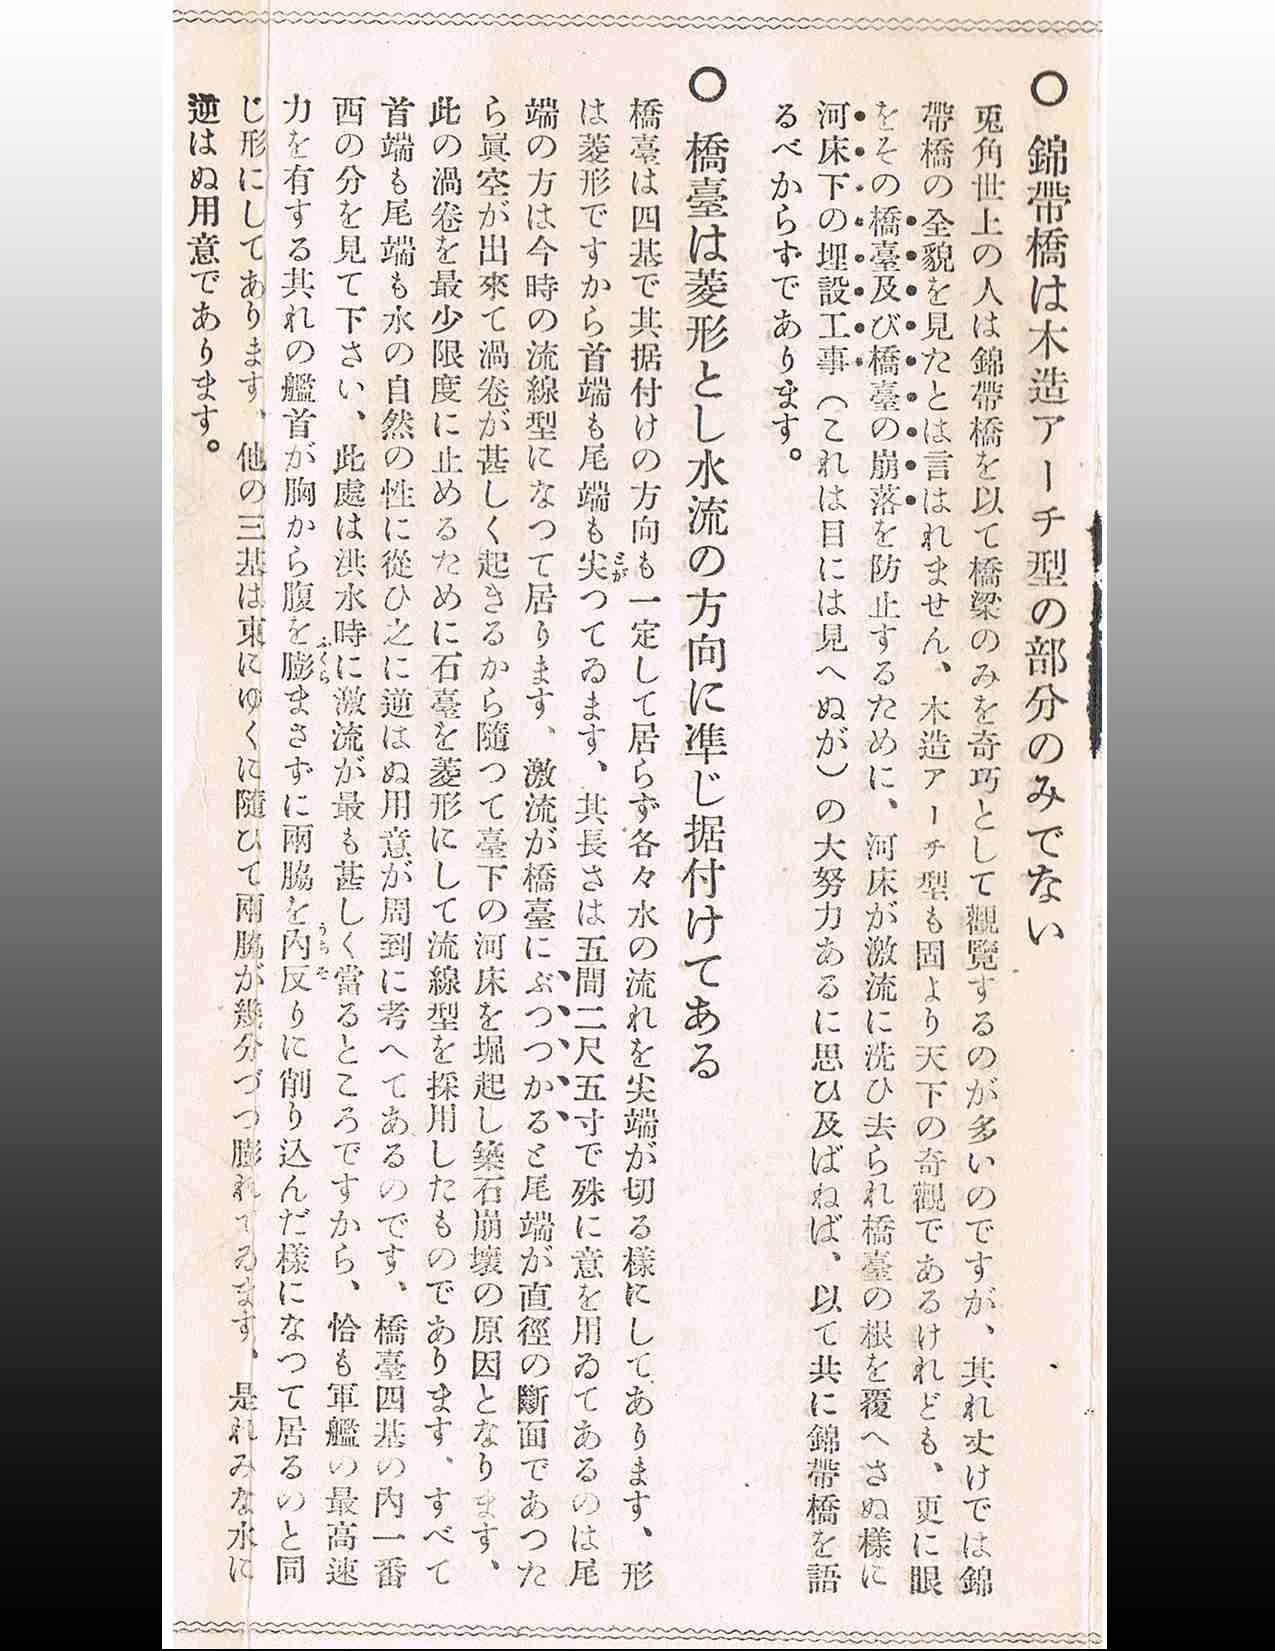 ○ 錦帶橋は木造アーチ型の部分のみでない
兎角世上の人は錦帶橋を以て橋梁のみを奇巧として觀覽するのが多いのですが、其れ丈けでは錦
帶橋の全貌を見たとは言はれません、木造アーチ型も固より天下の奇觀であるけれども、更に眼
をその橋臺及び橋臺の崩落を防止するために、河床が激流に洗ひ去られ橋臺の根を覆へさぬ樣に
河床下の埋設工事（これは目には見へぬが）の大努力あるに思ひ及ばねば、以て共に錦帶橋を語
るべからずであります。
○ 橋臺は菱形とし水流の方向に準じ据付けてある
橋臺は四基で其据付けの方向も一定して居らず各々水の流れを尖端が切る樣にしてあります、形
は菱形ですから首端も尾端も尖つてゐます、其長さは五間二尺五寸で殊に意を用ゐてあるのは尾
端の方は今時の流線型になつて居ります、激流が橋臺にぶつつかると尾端が直徑の斷面であつた
ら眞空が出來て渦卷が甚しく起きるから隨つて臺下の河床を堀起し築石崩壞の原因となります、
此の渦卷を最少限度に止めるために石臺を菱形にして流線型を採用したものであります、すべて
首端も尾端も水の自然の性に從ひ之に逆はぬ用意が周到に考へてあるのです、橋臺四基の內一番
西の分を見て下さい、此處は洪水時に激流が最も甚しく當るところですから、恰も軍艦の最高速
力を有する其れの艦首が胸から腹を膨まさずに兩脇を內反りに削り込んだ樣になつて居るのと同
じ形にしてあります、他の三基は東にゆくに隨ひて兩脇が幾分づつ膨れてゐます、是れみな水に
逆はぬ用意であります。